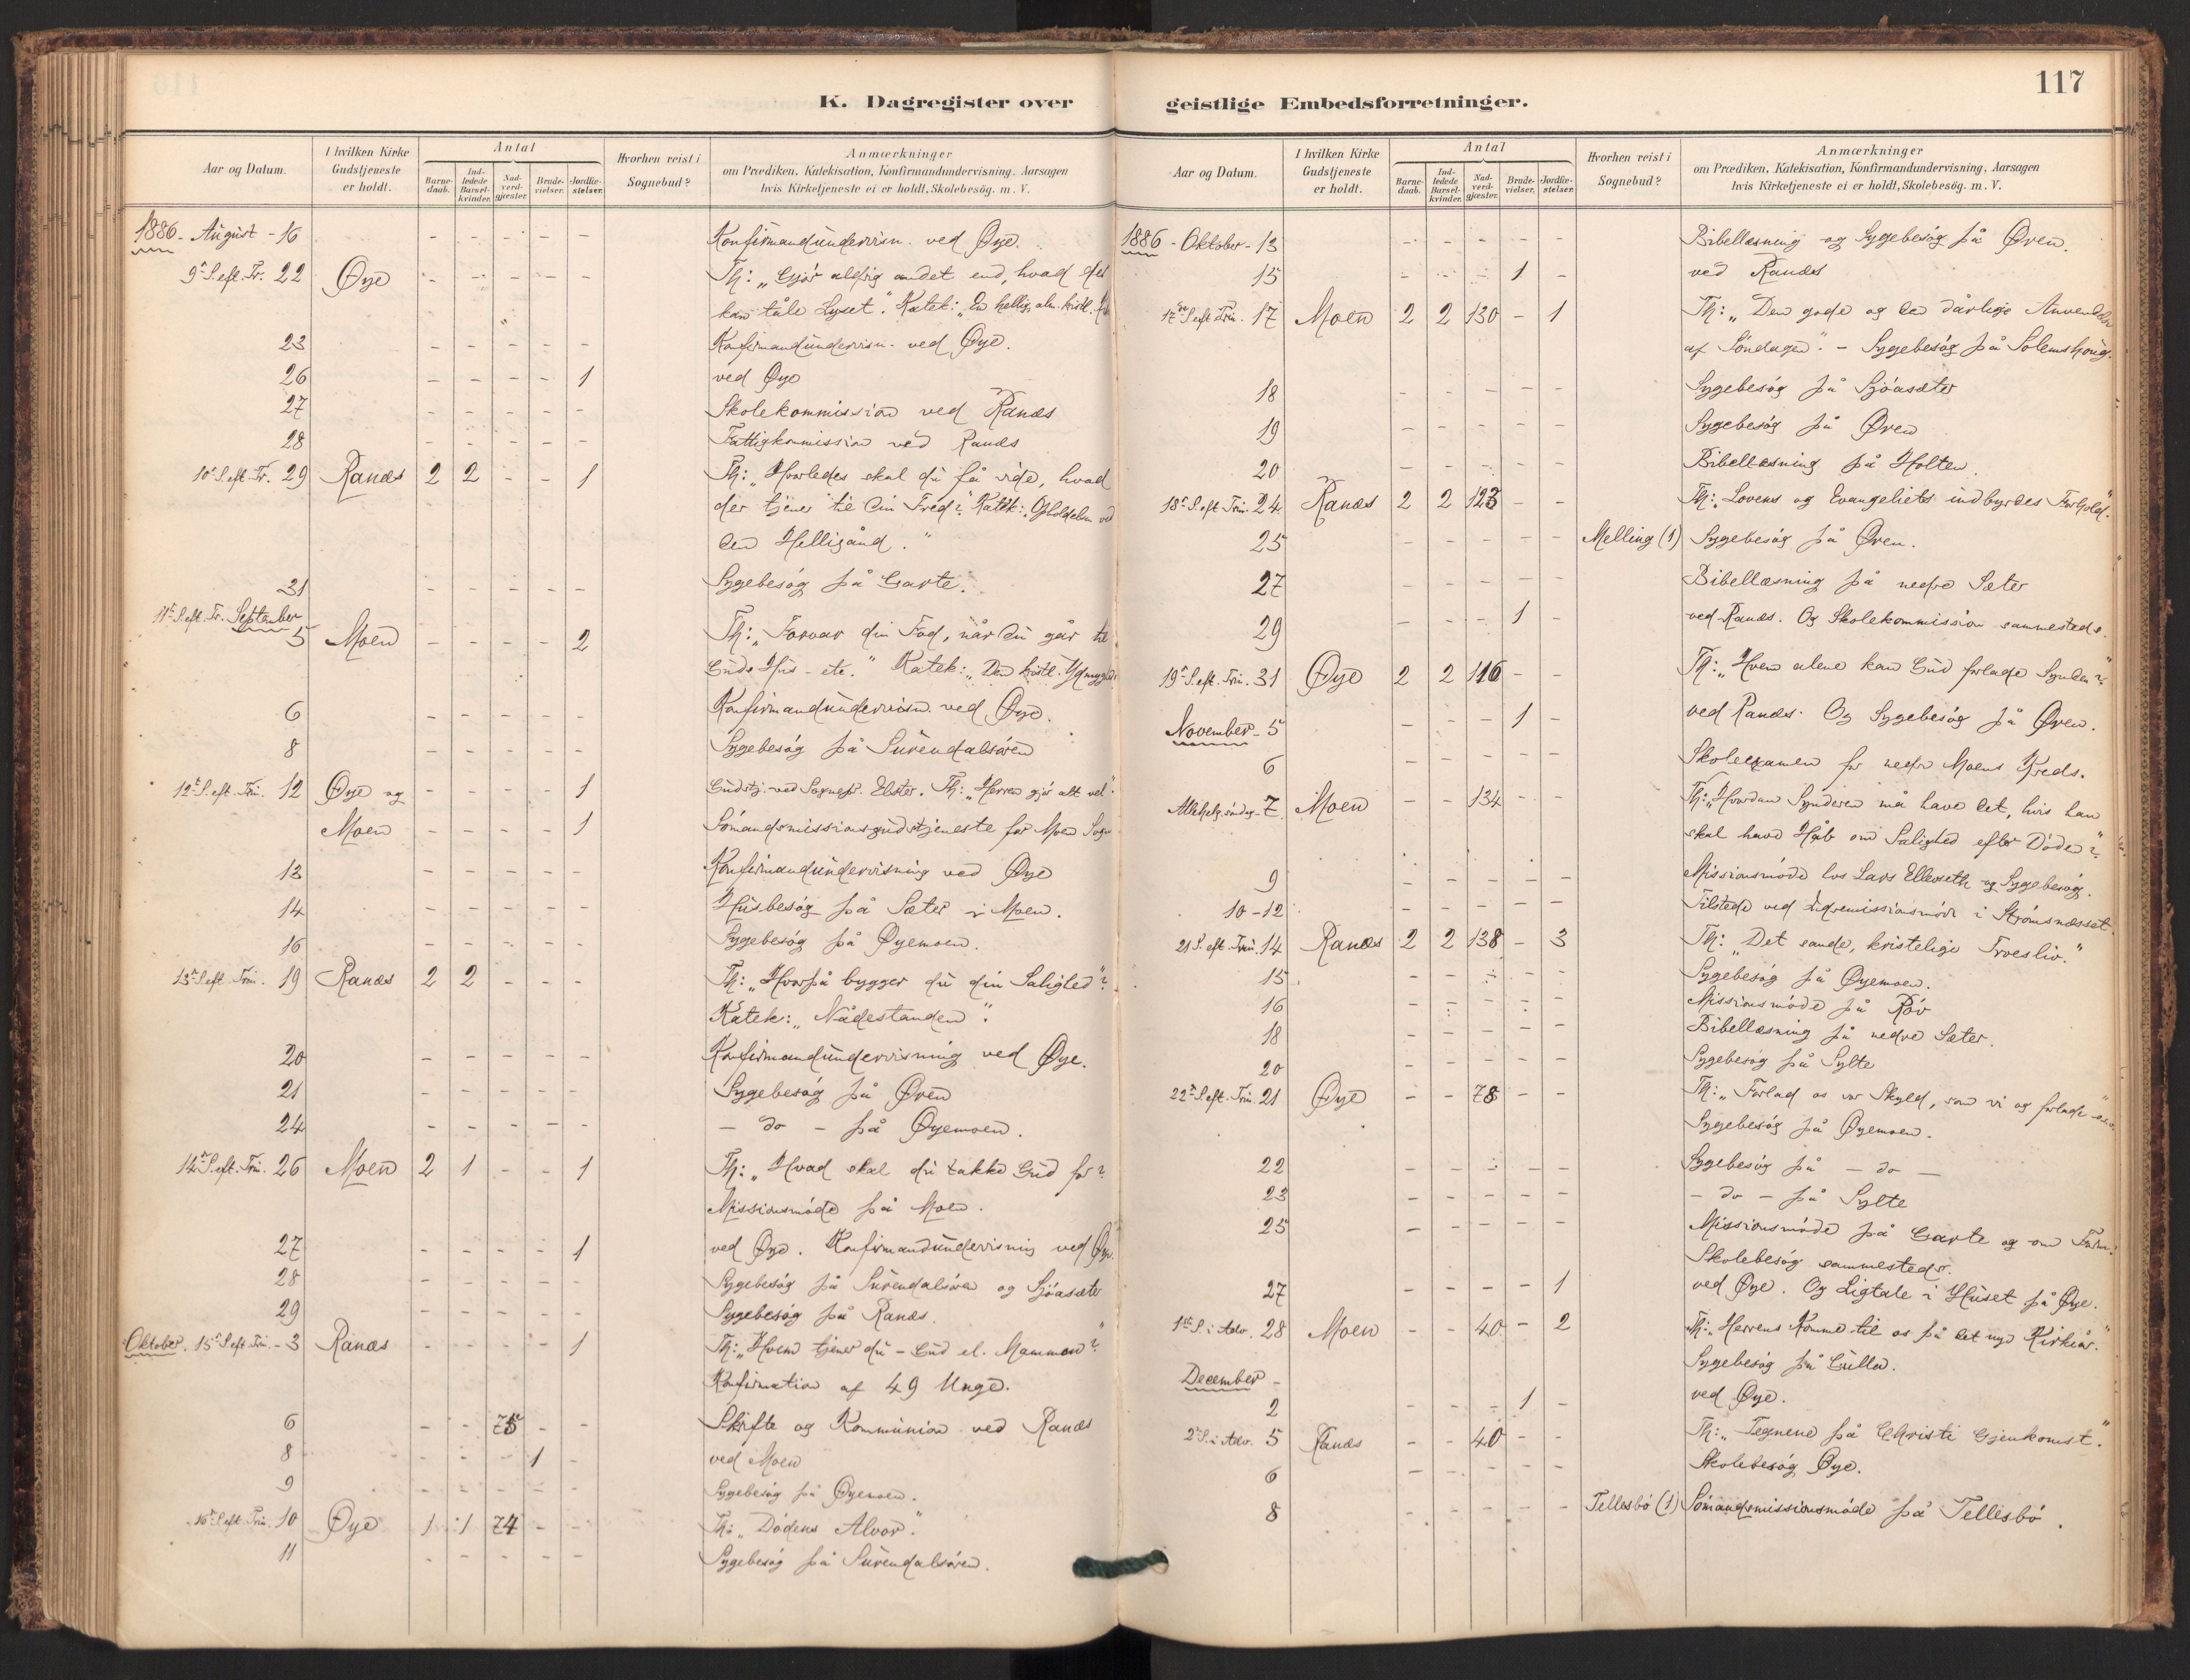 117
K. Dagregister over geistlige Embedsforretninger.
Aar og Datum. I hvilken Kirke Gudstjeneste er holdt. Antal Barne-daab. Ind-ledede Barsel-kvinder. Nad-verd-gjæster. Brude-vielser. Jordfæ-stelser. Hvorhen reist i Sognebud? Anmærkninger om Prædiken, Katekisation, Konfirmandundervisning, Aarsagen hvis Kirketjeneste ei er holdt, Skolebesög. m. V.
1886 - August - 16 - - - - - Konfirmandundervisn. ved Øye.
9de S. eft. Tr. 22 Øye - - - - - Th: „Gjør aldrig andet end, hvad der
kan tåle Lyset". Katek: „En hellig, alm. kristl.
23 - - - - - Konfirmandundervisn. ved Øye.
26 - - - - 1 ved Øye
27 - - - - - Skolekommission ved Ranæs
28 - - - - - Fattigkommission ved Ranæs
10de S. eft. Tr. 29 Ranæs 2 2 - - 1 Th: „Hvorledes skal du få vide, hvad
der tjener til din Fred?" Katek: „Opholdelsen ved
den Helligånd."
31 - - - - - Sygebesøg på Garte.
11te S. eft. Tr. September
5 Moen - - - - 2 Th: „Forvar din Fod, når du går til
Guds Hus - etc." Katek: „Den kristl.
6 - - - - - Konfirmandundervisn. ved Øye.
8 - - - - - Sygebesøg på Surendalsøren
12te S. eft. Trin. 12 Øye og - - - - 1 Gudstj. ved Sognepr. Elster. Th: „Herren gjør alt vel".
Moen - - - - 1 Sømandsmissionsgudstjeneste for Moen Sogn
13 - - - - - Konfirmandundervisning ved Øye
14 - - - - - Husbesøg på Sæter i Moen.
16 - - - - - Sygebesøg på Øyemoen.
13de S. eft. Trin. 19 Ranæs 2 2 - - - Th: „Hvorpå bygger du din Salighed"?
Katek: „Nådestanden".
20 - - - - - Konfirmandundervisning ved Øye.
21 - - - - - Sygebesøg på Øren
24 - - - - - - do - på Øyemoen.
14de S. eft. Trin. 26 Moen 2 1 - - 1 Th: „Hvad skal du takke Gud for?
Missionsmøde på Moen.
27 - - - - 1 ved Øye. Konfirmandundervisning ved Øye.
28 - - - - - Sygebesøg på Surendalsøren og Sjøasæter
29 - - - - - Sygebesøg på Ranæs.
Oktober. 15de S. eft. Trin. - 3 Ranæs - - - - 1 Th: „Hvem tjener du - Gud el. Mammon"?
Konfirmation af 49 Unge.
6 - - 75 - - Skrifte og Kommunion ved Ranæs
8 - - - 1 - ved Moen
9 - - - - - Sygebesøg på Øyemoen.
16de S. eft. Trin. 10 Øye 1 1 74 - - Th: „Dødens Alvor".
11 - - - - - Sygebesøg på Surendalsøren.
Aar og Datum. I hvilken Kirke Gudstjeneste er holdt. Antal Barne-daab. Ind-ledede Barsel-kvinder. Nad-verd-gjæster. Brude-vielser. Jordfæ-stelser. Hvorhen reist i Sognebud? Anmærkninger om Prædiken, Katekisation, Konfirmandundervisning, Aarsagen hvis Kirketjeneste ei er holdt, Skolebesög. m. V.
1886 - Oktober - 13 - - - - - Bibellæsning og Sygebesøg på Øren.
15 - - - 1 - ved Ranæs
17de S. eft. Trin. 17 Moen 2 2 130 - 1 Th: „Den gode og den dårlige Anvendelse
af Søndagen". - Sygebesøg på Solemshoug.
18 - - - - - Sygebesøg på Sjøasæter
19 - - - - - Sygebesøg på Øren
20 - - - - - Bibellæsning på Holten.
18de S. eft. Trin. 24 Ranæs 2 2 123 - - Th: „Lovens og Evangeliets indbyrdes Forhold."
25 - - - - - Melling (1) Sygebesøg på Øren.
27 - - - - - Bibellæsning på nedre Sæter
29 - - - 1 - ved Ranæs. Og Skolekommission sammesteds.
19de S. eft. Trin. 31 Øye 2 2 116 - - Th: „Hvem alene kan Gud forlade Synden"?
November - 5 - - - 1 - ved Ranæs. Og Sygebesøg på Øren.
6 - - - - - Skoleexamen for nedre Moens Kreds.
Allehelg.søndag - 7 Moen - - 134 - - Th: „Hvordan Synderen må have det, hvis han
skal have Håb om Salighed efter Døden"?
9 - - - - - Missionsmøde hos Lars Ellevseth og Sygebesøg.
10-12 - - - - - Tilstede ved Indremissionsmøde i Strømsnæsset.
21 S. eft. Trin. 14 Ranæs 2 2 138 - 3 Th: „Det sande, kristelige Troesliv."
15 - - - - - Sygebesøg på Øyemoen.
16 - - - - - Missionsmøde på Røv
18 - - - - - Bibellæsning på nedre Sæter.
20 - - - - - Sygebesøg på Sylte
22de S. eft. Trin. 21 Øye - - 78 - - Th: „Forlad os vor Skyld, som vi og forlade" osv.
Sygebesøg på Øyemoen.
22 - - - - - Sygebesøg på - do -
23 - - - - - - do - på Sylte
25 - - - - - Missionsmøde på Garte og om Form.
Skolebesøg sammesteds.
27 - - - - 1 ved Øye. Og Ligtale i Huset på Øye.
1ste S. i Adv. 28 Moen - - 40 - 2 Th: „Herrens Komme til os på det nye Kirkeår."
Sygebesøg på Gulla.
December -
2 - - - 1 - ved Øye.
2de S. i Adv. 5 Ranæs - - 40 - - Th: „Tegnene på Christi Gjenkomst".
6 - - - - - Skolebesøg Øye.
8 - - - - - Tellesbø (1) Sømandsmissionsmøde på Tellesbø.